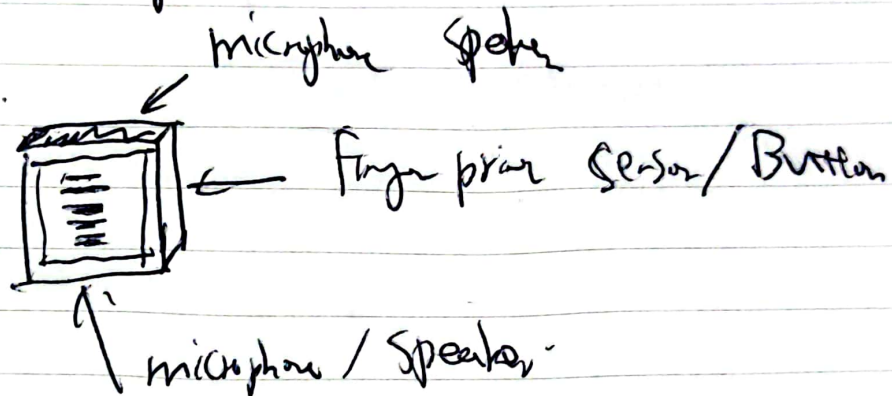 microphone speaker
Finger print Sensor/Button
microphone / Speaker